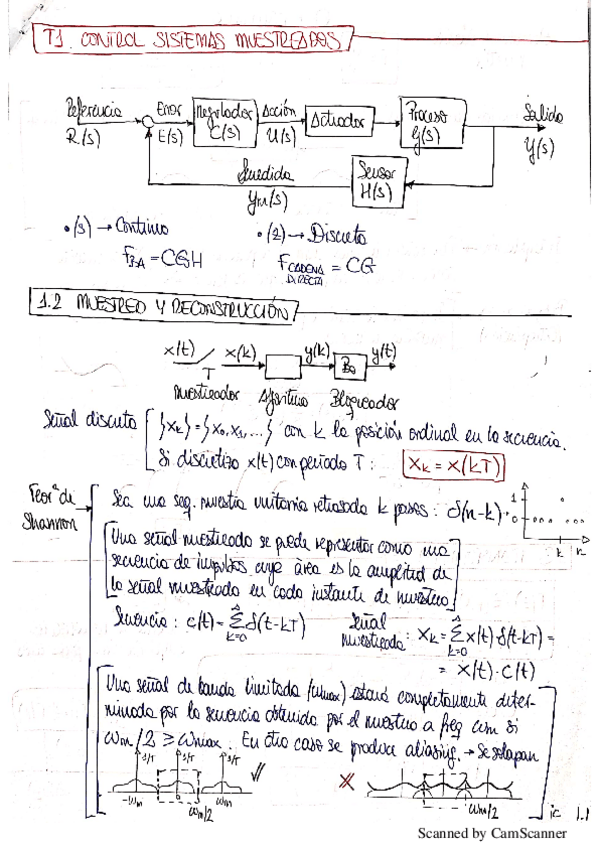 T1. CONTROL SISTEMAS MUESTREADOS
Referencia Error Regulador Acción Actuador Proceso Salida
R(s) E(s) C(s) U(s) G(s) Y(s)
Smedida Sensor
Ym(s) H(s)
•(s) → Continuo •(z) → Discreto
F_BA = CGH F_CADENA DIRECTA = CG
1.2 MUESTREO Y RECONSTRUCCIÓN
x(t) x(k) y(k) y(t)
T B₀
Muestreador Algoritmo Bloqueador
Señal discreta {x_k} = {x₀, x₁, ...} con k la posición ordinal en la secuencia.
Si discretizo x(t) con periodo T: x_k = x(kT)
Teorª de Shannon
Sea una seq. muestra unitaria retrasada k pasos: δ(n-k) 1 0 k n
Una señal muestreada se puede representar como una
secuencia de impulsos cuya área es la amplitud de
la señal muestreada en cada instante de muestreo
Secuencia: c(t) = Σ k=0 δ(t-kT) Señal muestreada: x_k = Σ k=0 x(t) δ(t-kT) =
= x(t) · c(t)
Una señal de banda limitada (ωmax) estará completamente deter-
minada por la secuencia obtenida por el muestreo a freq ωm si
ωm/2 ≥ ωmax. En otro caso se produce aliasing. → Se solapan
1/T 1/T 1/T
-ωm 0 ωm
ωm/2 ωm/2
1.1
Scanned by CamScanner